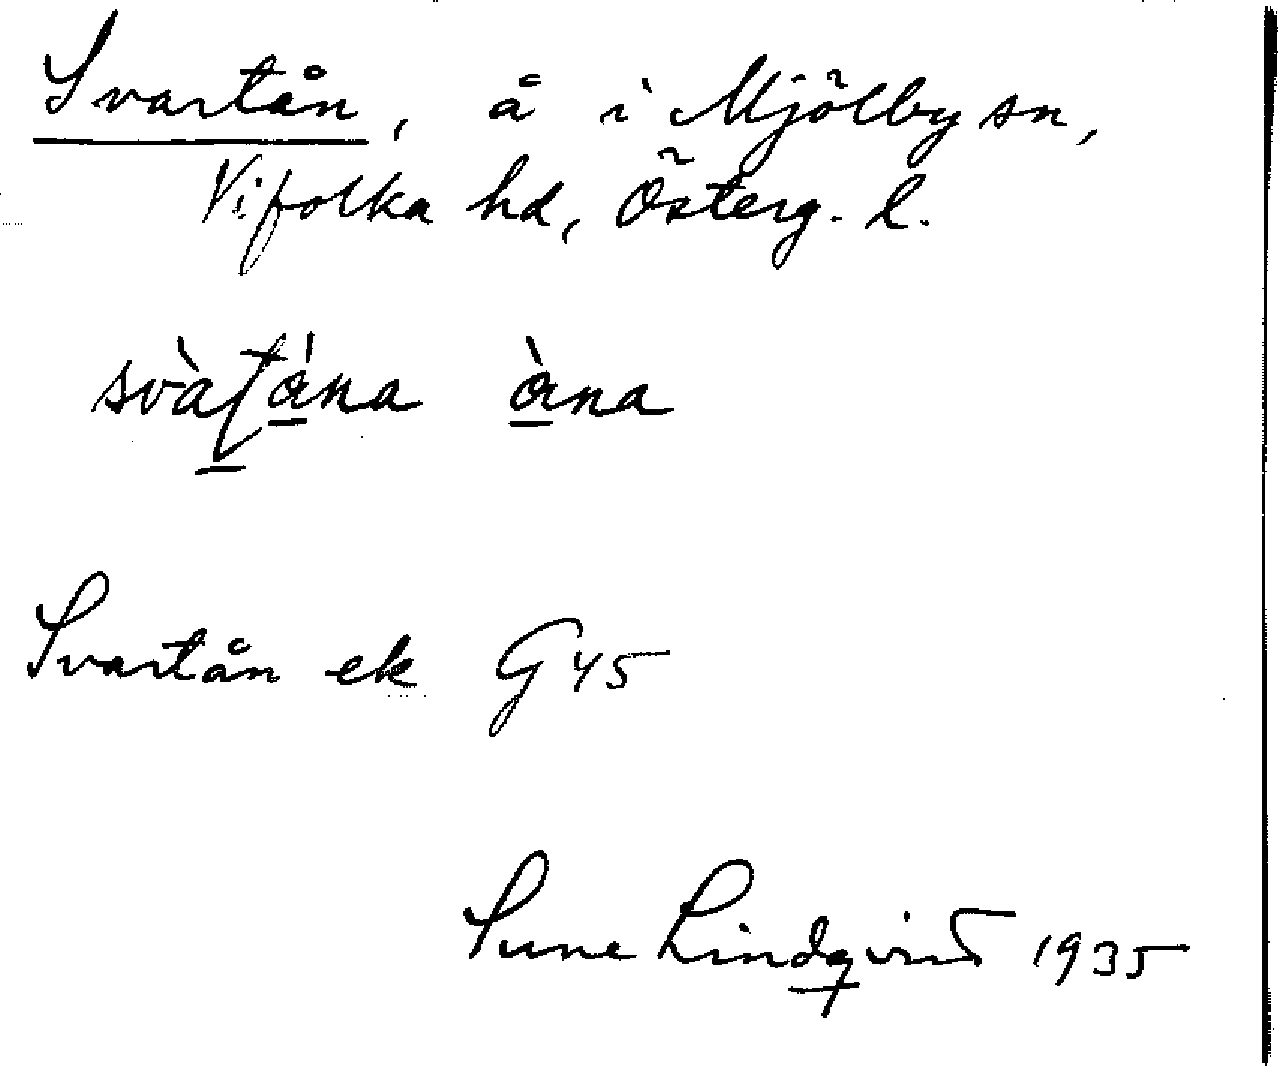 Svartån, å i Mjölby sn,
Vifolka hd, Österg. l.
svàʈána àna
Svartån ek G 45
Sune Lindqvist 1935